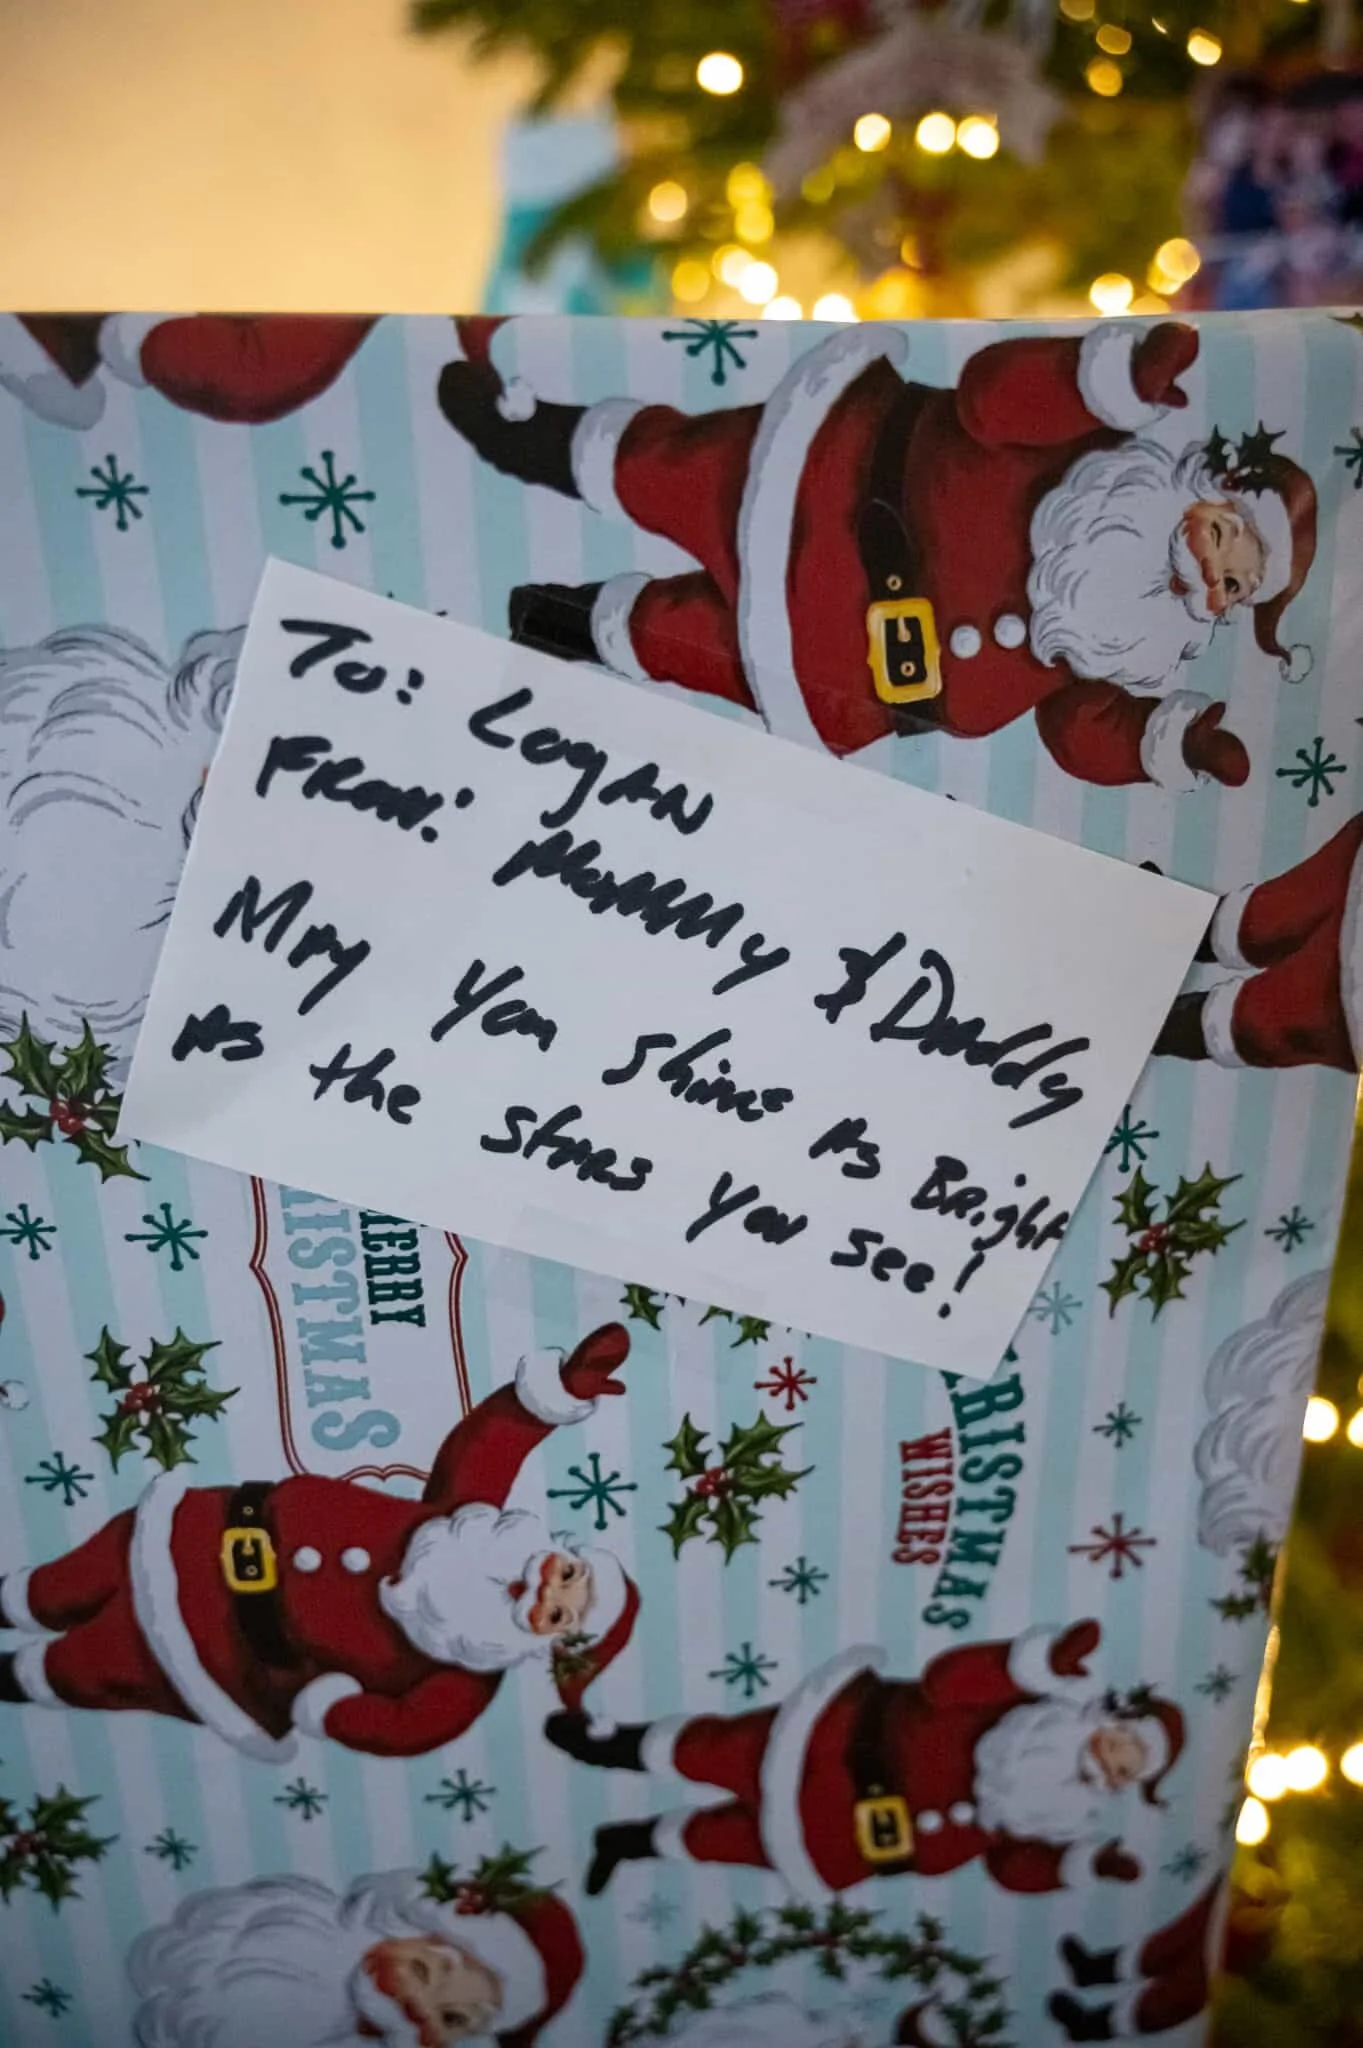 To: Logan
From: Mommy & Daddy
May you shine as Bright
as the stars you see!
MERRY
CHRISTMAS
CHRISTMAS
WISHES